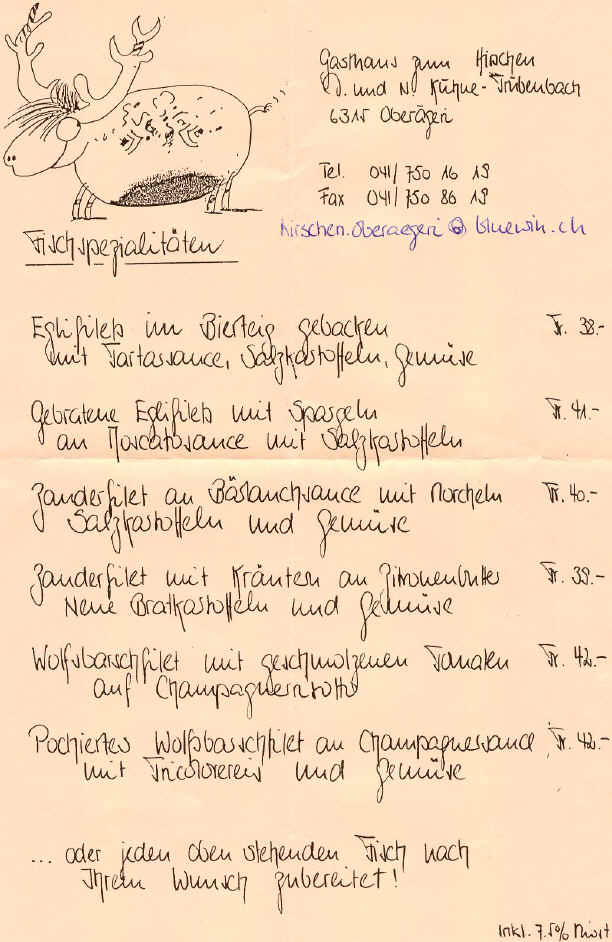 Gasthaus zum Hirschen
J. und N. Kühne-Trübenbach
6315 Oberägeri
Tel. 041/750 16 19
Fax 041/750 86 19
hirschen.oberaegeri@bluewin.ch
Fischspezialitäten
Eglifilets im Bierteig gebacken Fr. 38.-
mit Tartarsauce, Salzkartoffeln, Gemüse
Gebratene Eglifilets mit Spargeln Fr. 41.-
an Moscatosauce mit Salzkartoffeln
Zanderfilet an Bärlauchsauce mit Morcheln Fr. 40.-
Salzkartoffeln und Gemüse
Zanderfilet mit Kräutern an Zitronenbutter Fr. 39.-
Neue Bratkartoffeln und Gemüse
Wolfsbarschfilet mit geschmolzenen Tomaten Fr. 42.-
auf Champagnerrisotto
Pochiertes Wolfsbarschfilet an Champagnersauce Fr. 42.-
mit Tricolorereis und Gemüse
... oder jeden oben stehenden Fisch nach
Ihrem Wunsch zubereitet!
Inkl. 7.5% Mwst